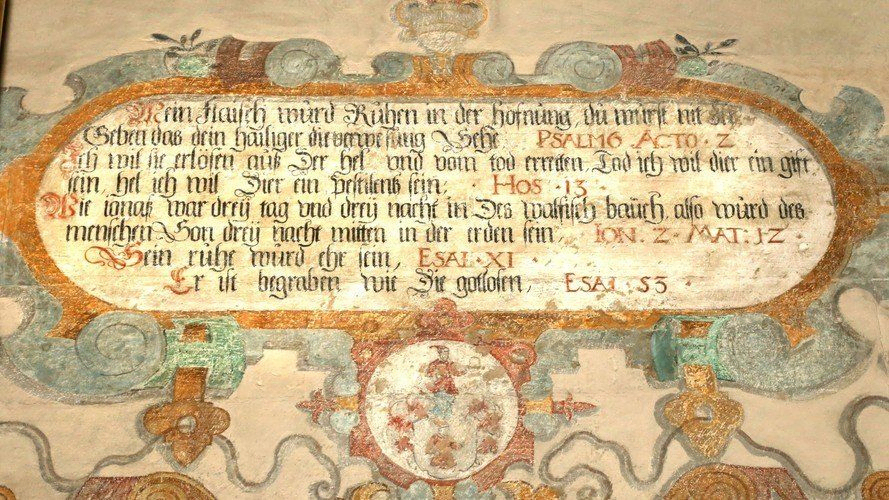 Mein Flaisch würd Rühen in der hofnung, du würst nit
Geben das dein hailiger die verwesung Sehe PSAL 16 ACTO · 2
Ich wil sie erlösen auß Der hel vnd vom tod erretten, Tod ich wil dier ein gift
sein, hel ich wil Dier ein Pestilentz sein, · HOS · 13 ·
Wie ionaß war dreÿ tag vnd dreÿ nacht in Des walfisch bauch, also würd des
menschen Son dreÿ nacht mitten in der erden sein, ION · 2 · MAT : 12 ·
Sein rühe würd ehr sein, ESAI · XI ·
Er ist begraben wie Die gotlosen, ESAI · 53 ·